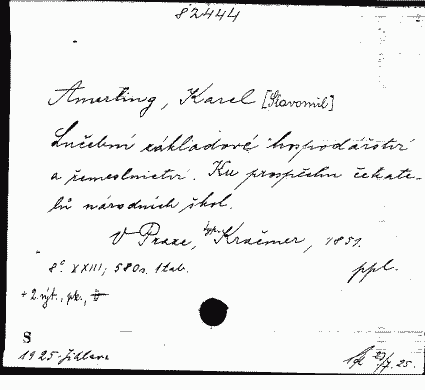 82444
Amerling, Karel [Slavomil]
Lučební základové hospodářství
a řemeslnictví. Ku prospěchu čekate-
lů národních škol.
V Praze, typ. Kračmer, 1851.
8° XXIII, 580 s. 1 tab.
ppl.
+ 2. výt., pk.,
S
1925 Jihlava
23/7. 25.